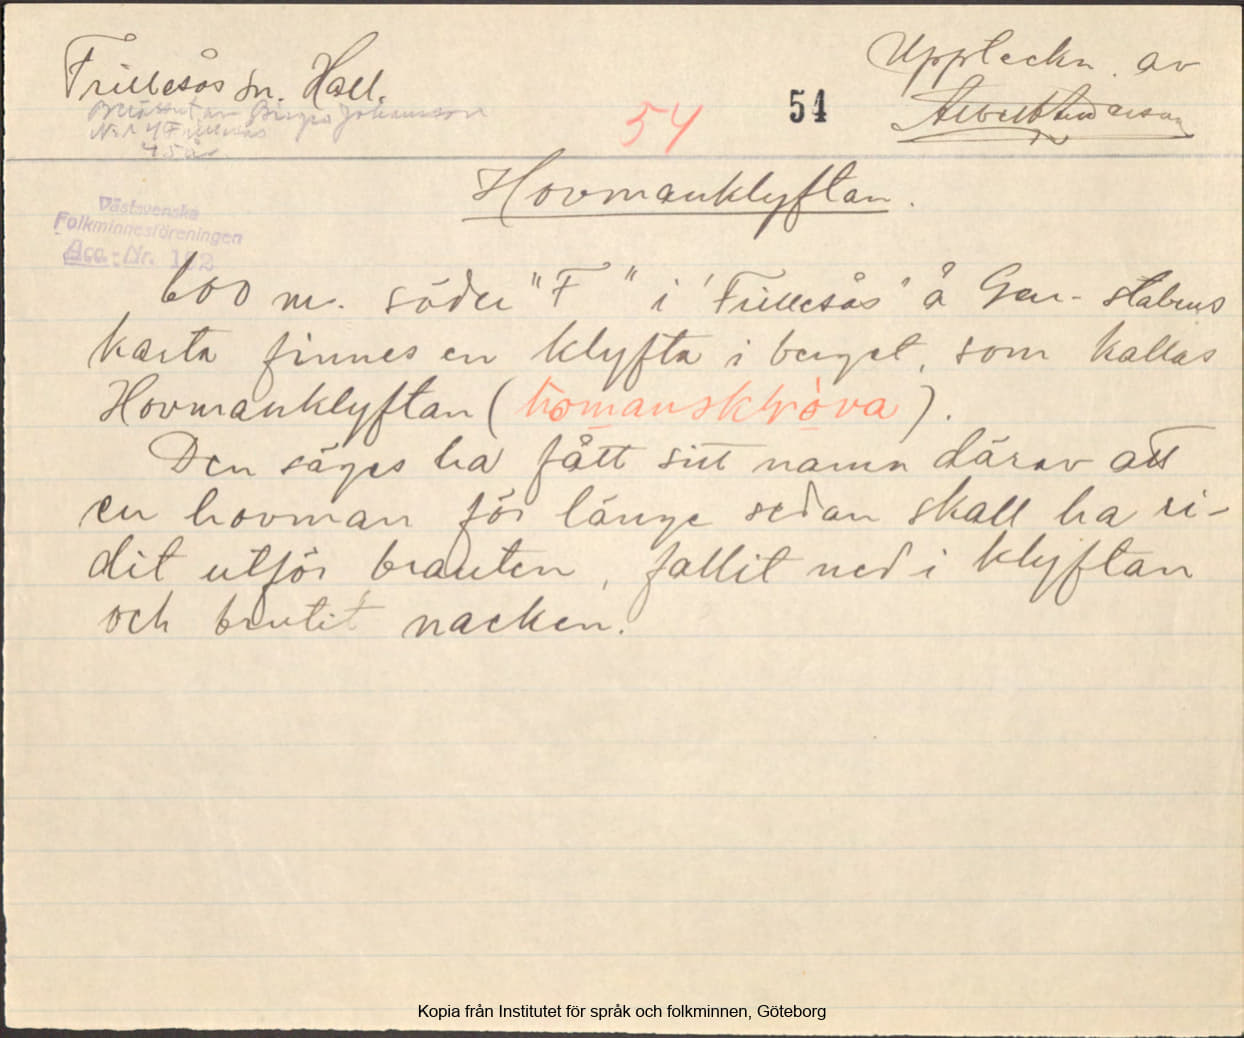 Frillesås sn. Hall.
Berättat av Birger Johansson
No 14 Frillesås
45 år.
54
54
Uppteckn. av
Albert Andersson
Hovmanklyftan.
Västsvenska
Folkminnesföreningen
Acc.-Nr. 192
600 m. söder "F" i 'Frillesås' å Gen-stabens
karta finnes en klyfta i berget, som kallas
Hovmanklyftan (homansklròva).
Den säges ha fått sitt namn därav att
en hovman för länge sedan skall ha ri-
dit utför branten, fallit ned i klyftan
och brutit nacken.
Kopia från Institutet för språk och folkminnen, Göteborg